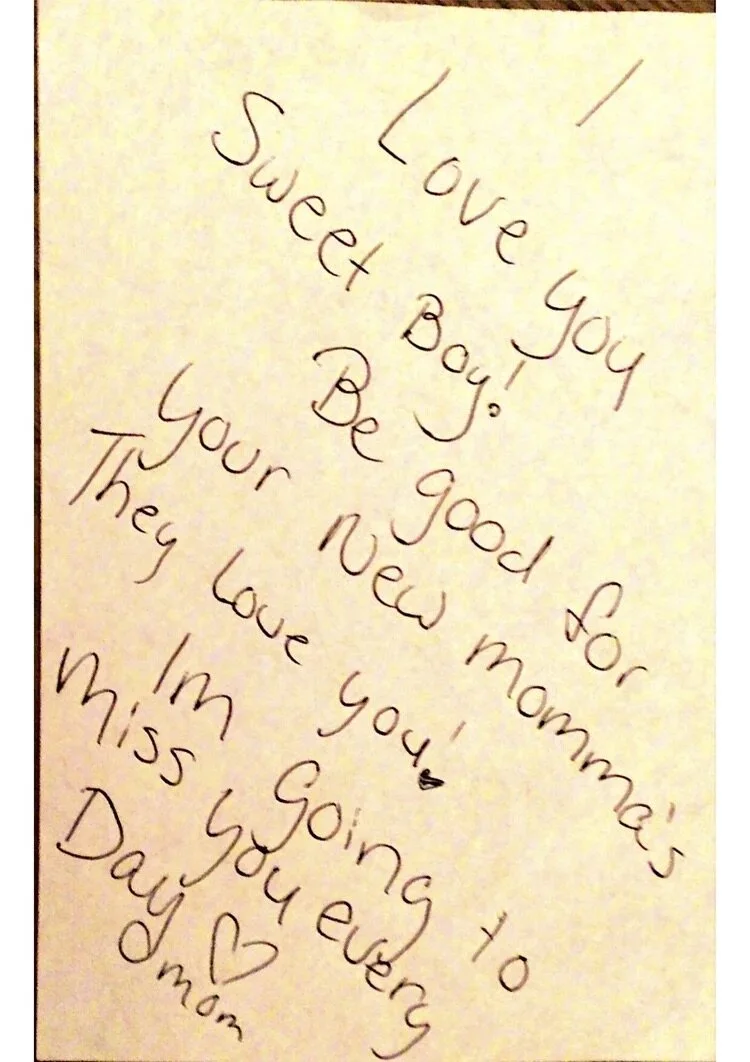 I
Love you
Sweet Boy!
Be good for
your New momma's
They Love you!
Im Going to
miss you every
Day ♡
mom